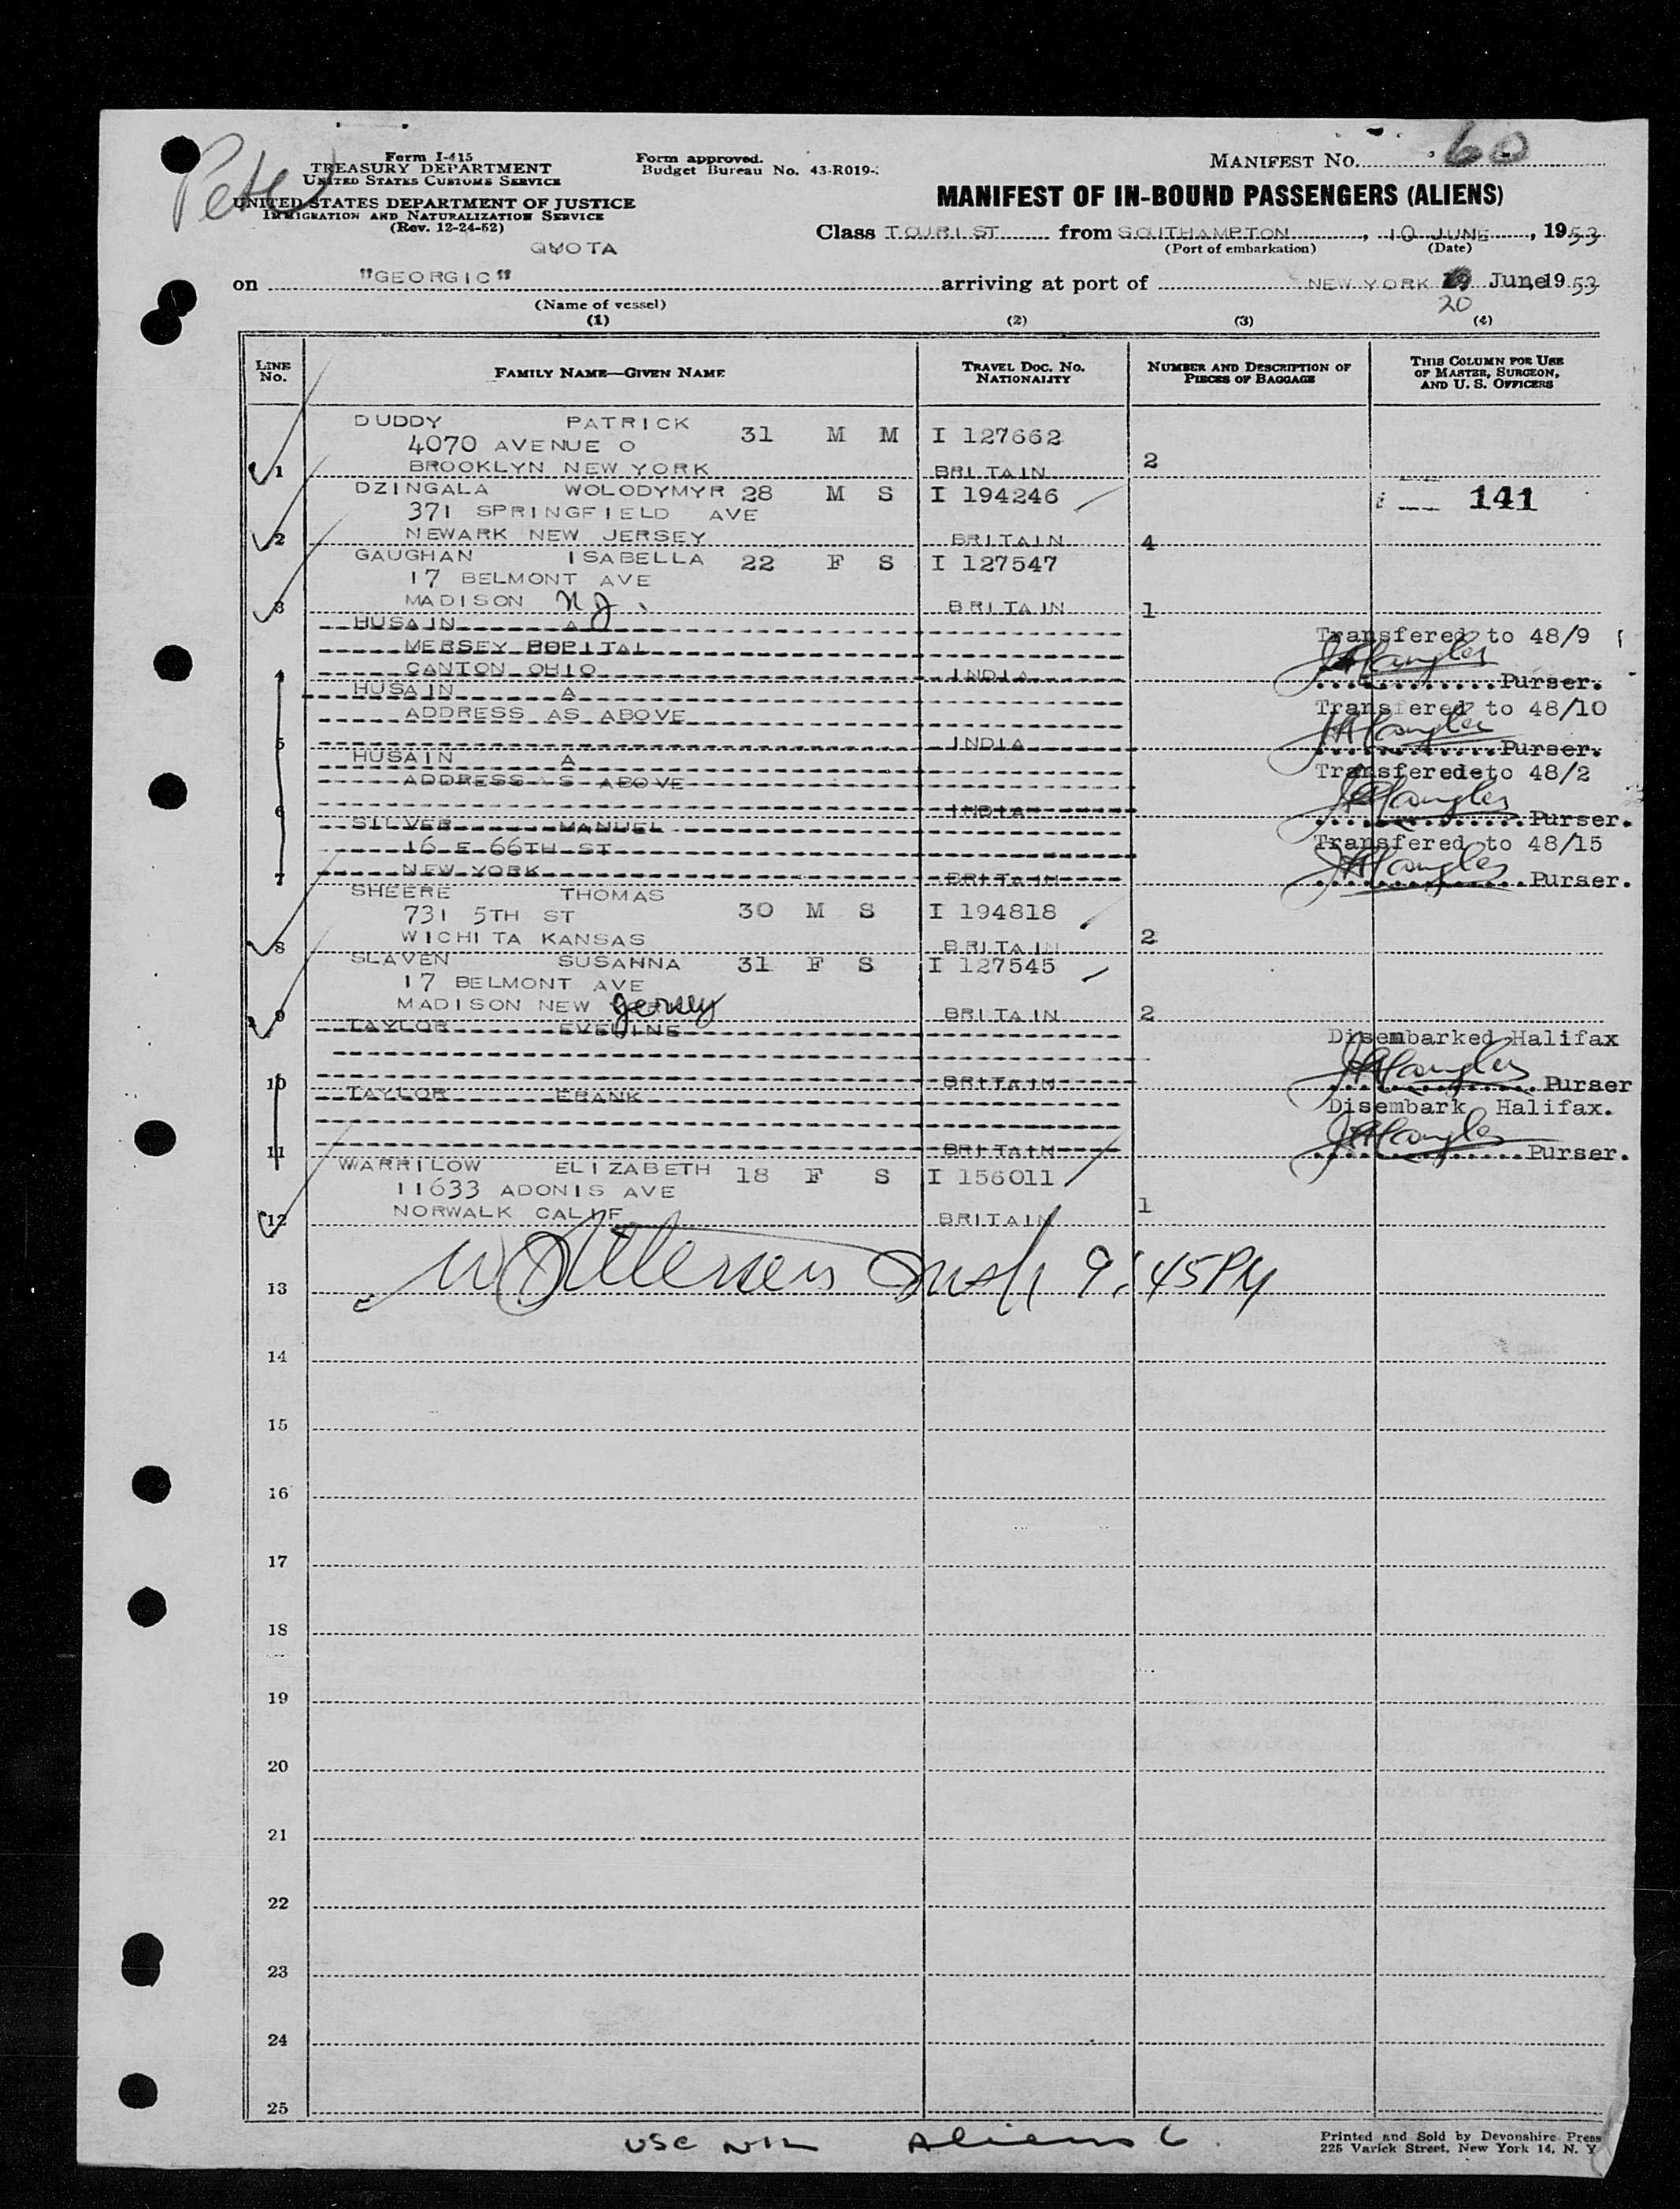 Pete
Form I-415
TREASURY DEPARTMENT
UNITED STATES CUSTOMS SERVICE
UNITED STATES DEPARTMENT OF JUSTICE
IMMIGRATION AND NATURALIZATION SERVICE
(Rev. 12-24-52)
Form approved.
Budget Bureau No. 43-R019-
MANIFEST No. 60
MANIFEST OF IN-BOUND PASSENGERS (ALIENS)
QUOTA
Class TOURIST from SOUTHAMPTON, 10 JUNE, 1953
(Port of embarkation) (Date)
on "GEORGIC" arriving at port of NEW YORK June 1953
20
(Name of vessel)
(1) (2) (3) (4)
LINE No. FAMILY NAME—GIVEN NAME TRAVEL DOC. No. NATIONALITY NUMBER AND DESCRIPTION OF PIECES OF BAGGAGE THIS COLUMN FOR USE OF MASTER, SURGEON, AND U. S. OFFICERS
DUDDY PATRICK 31 M M I 127662
4070 AVENUE O
1 BROOKLYN NEW YORK BRITAIN 2
DZINGALA WOLODYMYR 28 M S I 194246 141
371 SPRINGFIELD AVE
2 NEWARK NEW JERSEY BRITAIN 4
GAUGHAN ISABELLA 22 F S I 127547
17 BELMONT AVE
3 MADISON N J. BRITAIN 1
HUSAIN A Transfered to 48/9
MERSEY HOPITAL
4 CANTON OHIO INDIA Purser.
HUSAIN A Transfered to 48/10
ADDRESS AS ABOVE
5 INDIA Purser.
HUSAIN A Transferedeto 48/2
ADDRESS AS ABOVE
6 INDIA Purser.
SILVER MANUEL Transfered to 48/15
16 E 66TH ST
7 NEW YORK BRITAIN Purser.
SHEERE THOMAS 30 M S I 194818
731 5TH ST
8 WICHITA KANSAS BRITAIN 2
SLAVEN SUSANNA 31 F S I 127545
17 BELMONT AVE
9 MADISON NEW Jersey BRITAIN 2
TAYLOR EVELINE Disembarked Halifax
10 BRITAIN Purser
TAYLOR FRANK Disembark Halifax.
11 BRITAIN Purser.
WARRILOW ELIZABETH 18 F S I 156011
11633 ADONIS AVE
12 NORWALK CALIF BRITAIN 1
13 9:45PM
14
15
16
17
18
19
20
21
22
23
24
25
USC NIL Aliens 6
Printed and Sold by Devonshire Press
225 Varick Street, New York 14, N. Y